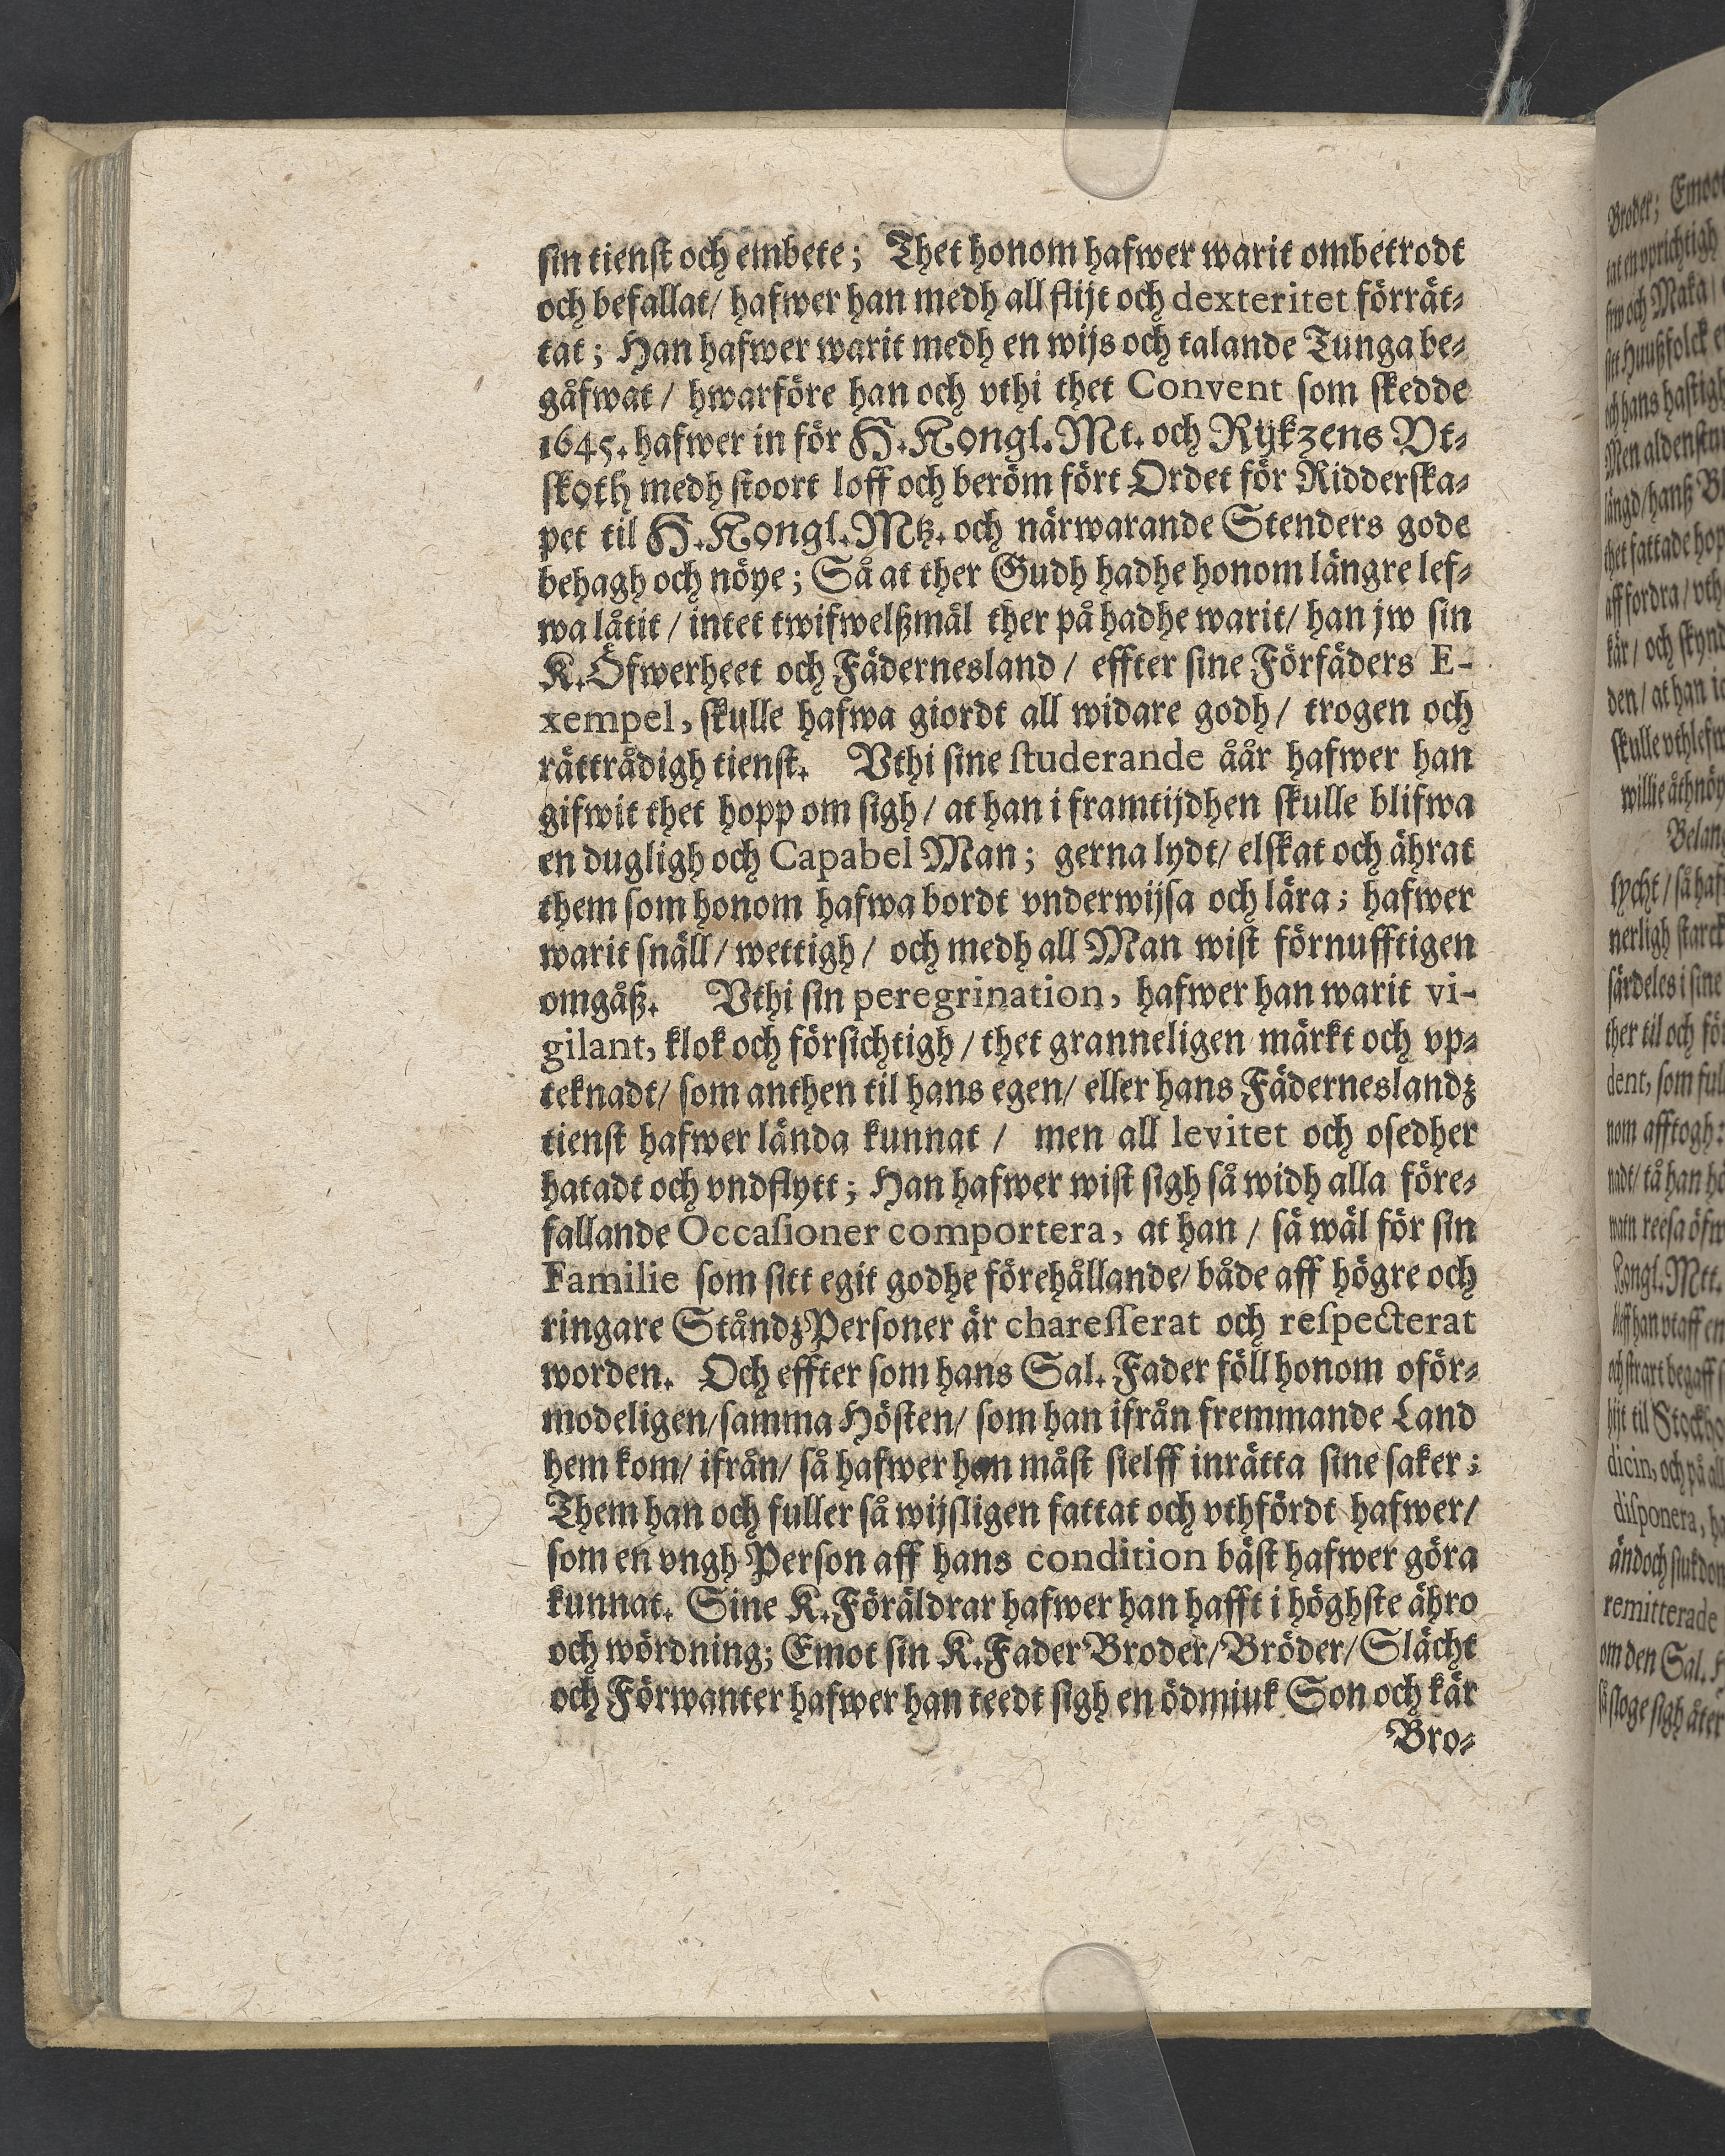 sin tienst och embete; Thet honom hafwer warit ombetrodt
och befallat/ hafwer han medh all flijt och dexteritet förrät-
tat; Han hafwer warit medh en wijs och talande Tunga be-
gåfwat / hwarföre han och vthi thet Convent som skedde
1645. hafwer in för H. Kongl. Mt. och Rijkzens Vt-
skoth medh stoort loff och beröm fört Ordet för Ridderska-
pet til H. Kongl. Mtz. och närwarande Stenders gode
behagh och nöye; Så at ther Gudh hadhe honom längre lef-
wa låtit / intet twifwelßmål ther på hadhe warit/ han jw sin
K. Öfwerheet och Fädernesland / effter sine Förfäders E-
xempel, skulle hafwa giordt all widare godh/ trogen och
rättrådigh tienst. Vthi sine studerande åår hafwer han
gifwit thet hopp om sigh / at han i framtijdhen skulle blifwa
en dugligh och Capabel Man; gerna lydt/ elskat och ährat
them som honom hafwa bordt vnderwijsa och lära; hafwer
warit snäll / wettigh / och medh all Man wist förnufftigen
omgåß. Vthi sin peregrination, hafwer han warit vi-
gilant, klok och försichtigh / thet granneligen märkt och vp-
teknadt/ som anthen til hans egen/ eller hans Fäderneslandz
tienst hafwer lända kunnat / men all levitet och osedher
hatadt och vndflytt; Han hafwer wist sigh så widh alla före-
fallande Occasioner comportera, at han / så wäl för sin
Familie som sitt egit godhe förehållande/ både aff högre och
ringare StåndzPersoner är charesserat och respecterat
worden. Och effter som hans Sal. Fader föll honom oför-
modeligen/samma Hösten/ som han ifrån fremmande Land
hem kom/ ifrån/ så hafwer han måst sielff inrätta sine saker;
Them han och fuller så wijsligen fattat och vthfördt hafwer/
som en vngh Person aff hans condition bäst hafwer göra
kunnat. Sine K. Föräldrar hafwer han hafft i höghste ähro
och wördning; Emot sin K. Fader Broder/ Bröder/ Slächt
och Förwanter hafwer han teedt sigh en ödmiuk Son och kär
Bro-